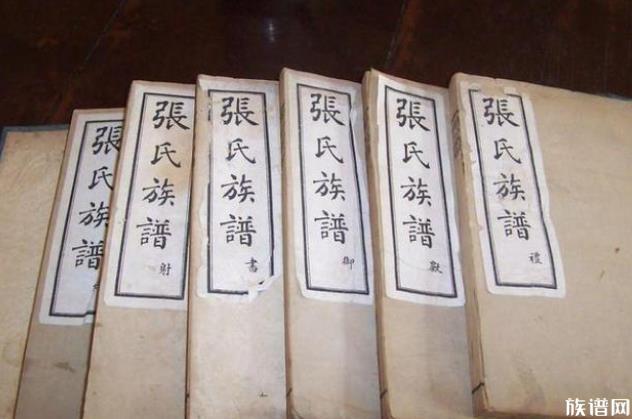 張氏族譜
張氏族譜
射
張氏族譜
書
張氏族譜
御
張氏族譜
張氏族譜
禮
族谱网